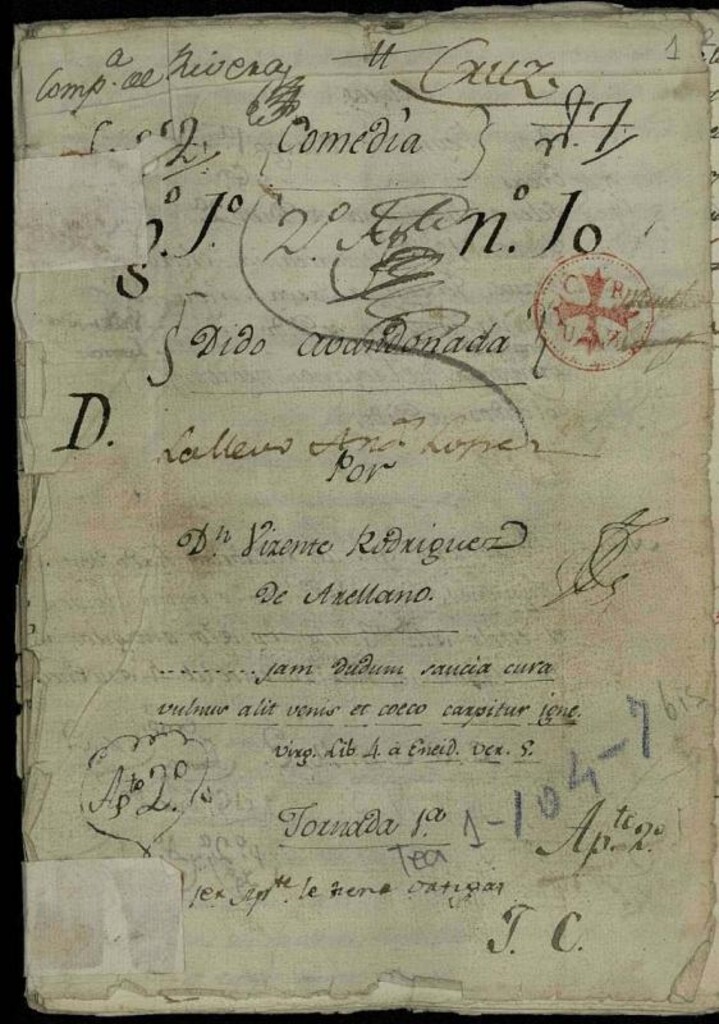 Comp.a de Rivera tt Cruz. 1
2. Comedia n.o 7.
1.o 2.o Apte n.o 10
CRUZ
Dido abandonada
D. La lleva Ana Lopez
Por
D.n Vizente Rodriguez
De Arellano.
.......... jam dudum saucia cura
vulnus alit venis et coeco carpitur igne.
virg. Lib 4. a Eneid. ver. 5.
Ap.to 2.o
Jornada 1.a
Tea 1-104-7 bis
Ap.te 2.o
1er Ap.te le tiene
J. C.